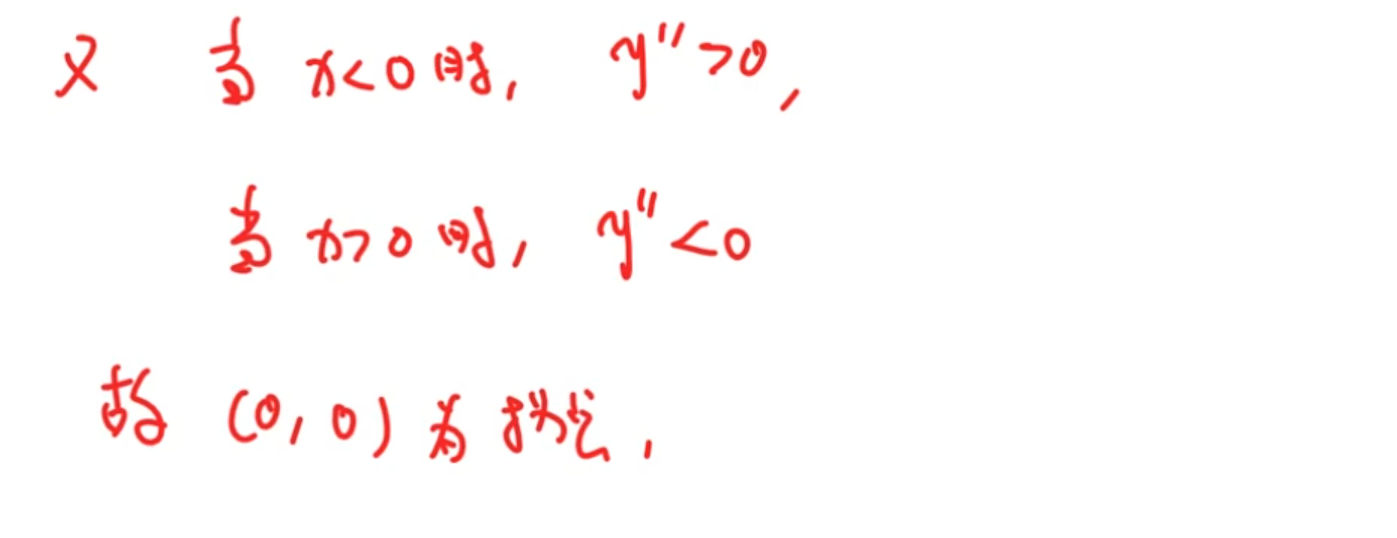 又 当 x<0 时, y''>0,
当 x>0 时, y''<0
故 (0,0) 为 拐点,